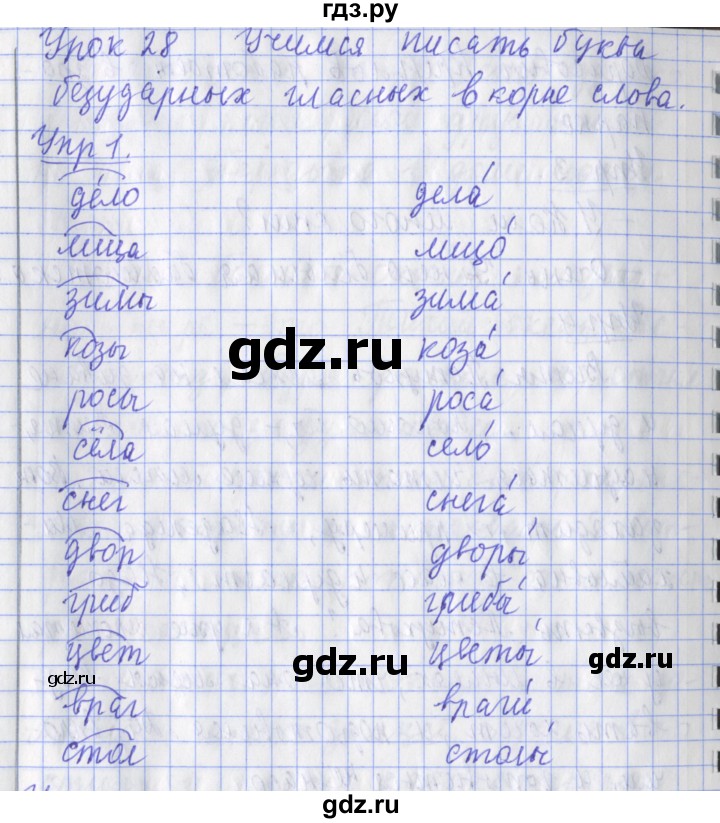 гдз.ру
Урок 28 Учимся писать буквы
безударных гласных в корне слова.
Упр 1.
дело дела́
лица лицо́
зимы зима́
козы коза́
росы роса́
сёла село́
снег снега́
двор дворы́
гриб грибы́
цвет цветы́
враг враги́
стол столы́
gdz.ru
gdz.ru
gdz.ru
gdz.ru
gdz.ru